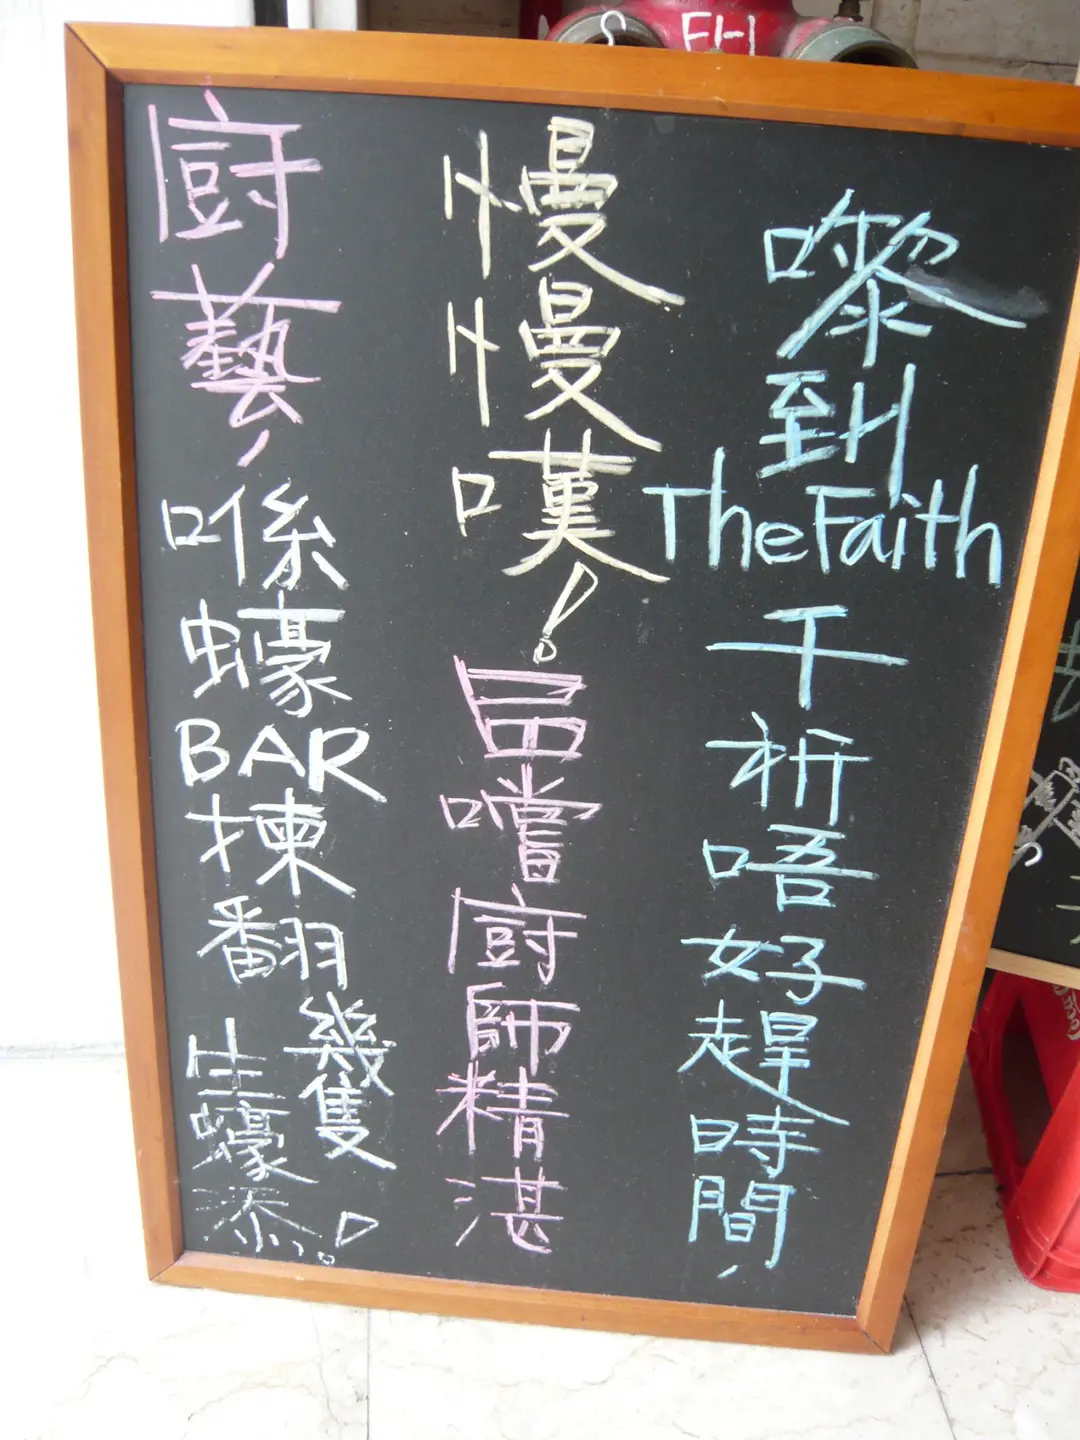 FH
嚟到The Faith千祈唔好趕時間，
慢慢嘆！品嚐廚師精湛
廚藝，喺蠔BAR揀翻幾隻生蠔添！